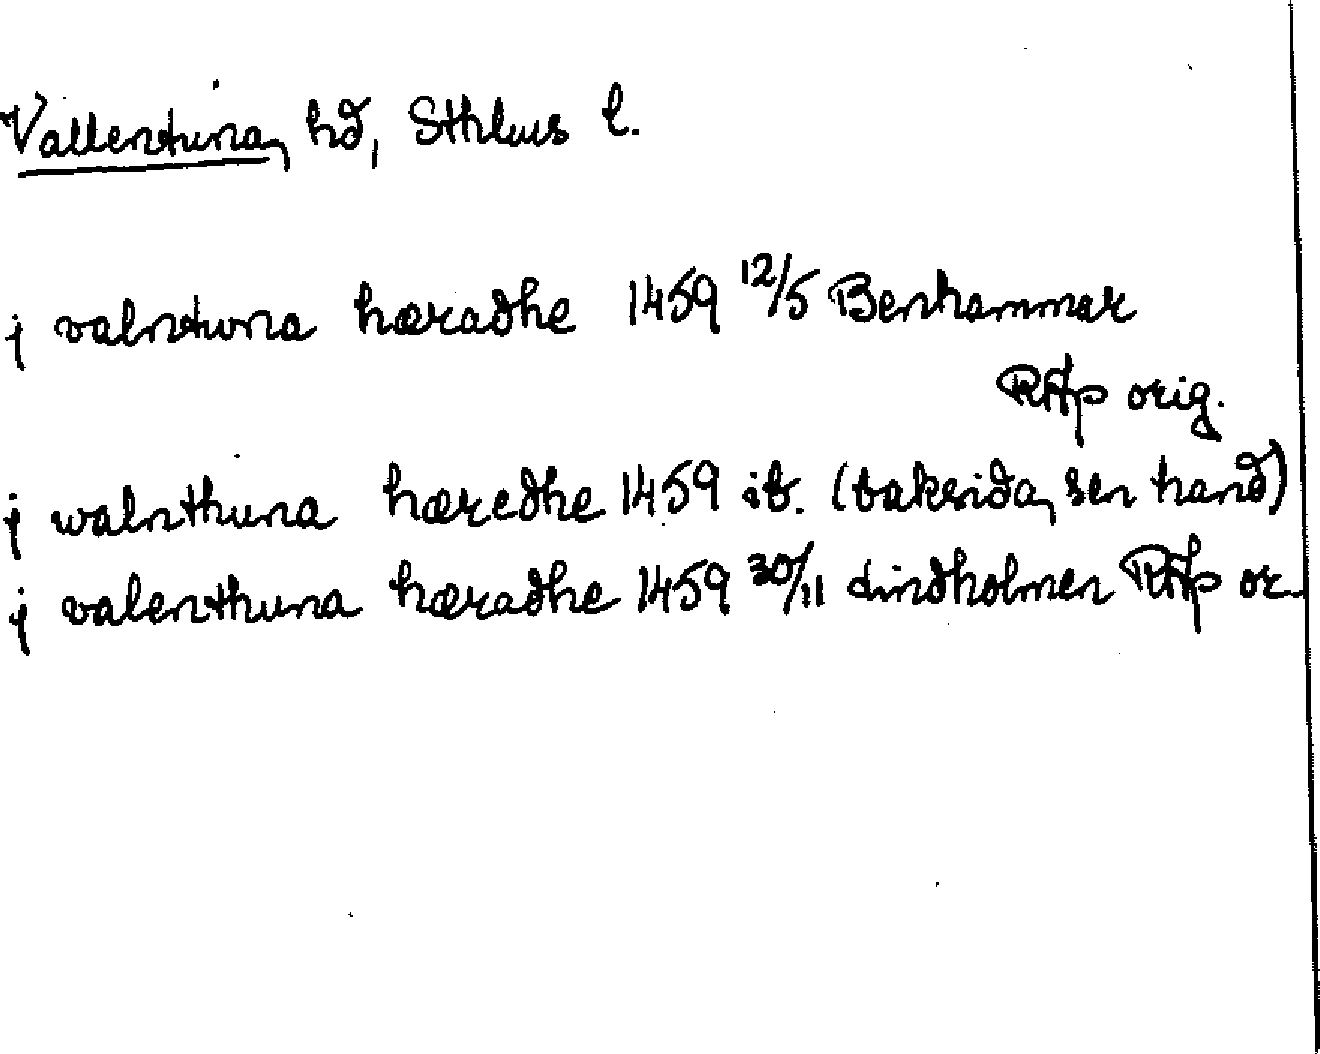 Vallentuna, hd, Sthlms l.
j valntuna hæradhe 1459 12/5 Benhammar
RAp orig.
j walnthuna hæredhe 1459 ib. (baksida, sen hand)
j valenthuna hæradhe 1459 30/11 Lindholmen RAp or.